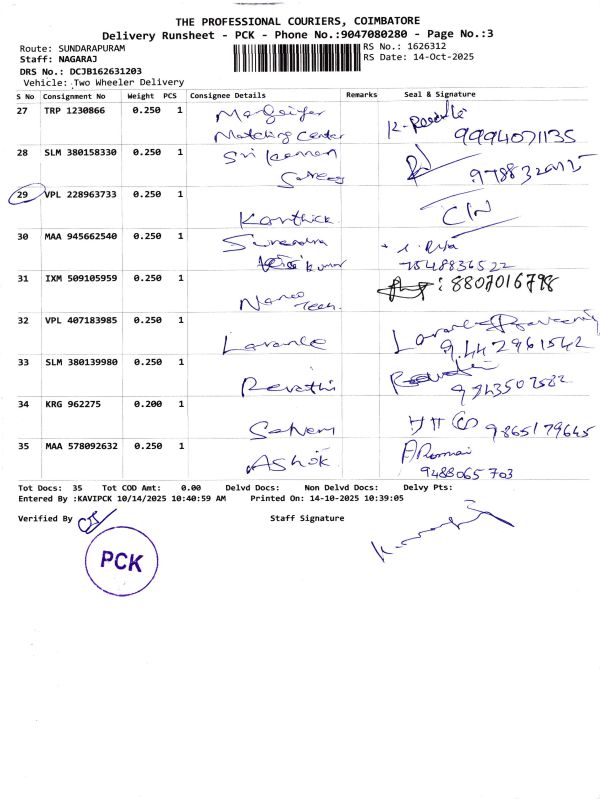 THE PROFESSIONAL COURIERS, COIMBATORE
Delivery Runsheet - PCK - Phone No.:9047080280 - Page No.:3
Route: SUNDARAPURAM
RS No.: 1626312
Staff: NAGARAJ
RS Date: 14-Oct-2025
DRS No.: DCJB162631203
Vehicle: Two Wheeler Delivery
S No Consignment No Weight PCS Consignee Details Remarks Seal & Signature
27 TRP 1230866 0.250 1
Matching Center 9994071135
28 SLM 380158330 0.250 1 Sri
29 VPL 228963733 0.250 1 Karthick. C/N
30 MAA 945662540 0.250 1 Surendra
Kumar 7548836522
31 IXM 509105959 0.250 1 Nanoo Tech. : 8807016798
32 VPL 407183985 0.250 1 9442961542
33 SLM 380139980 0.250 1 Revathi
34 KRG 962275 0.200 1 Selvem 9865179645
35 MAA 578092632 0.250 1 Ashok
9488065703
Tot Docs: 35 Tot COD Amt: 0.00 Delvd Docs: Non Delvd Docs: Delvy Pts:
Entered By :KAVIPCK 10/14/2025 10:40:59 AM Printed On: 14-10-2025 10:39:05
Verified By Staff Signature
PCK